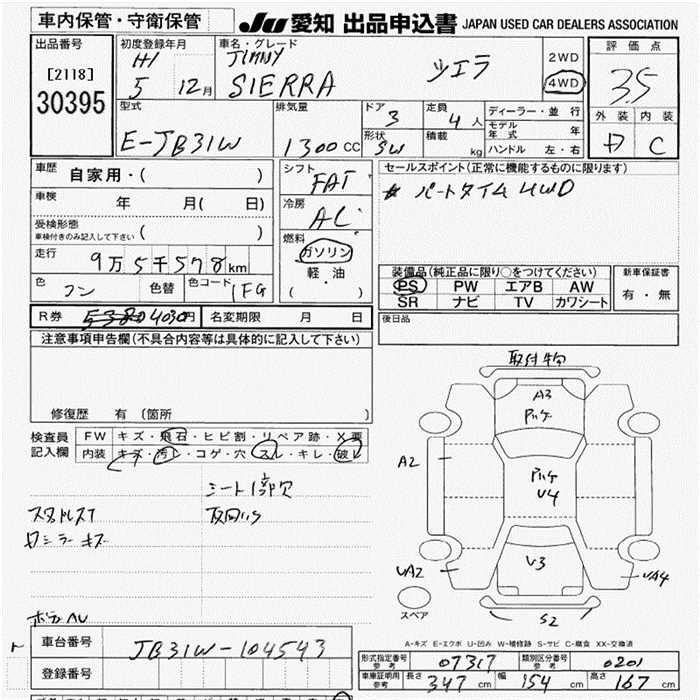 車内保管・守衛保管
JU 愛知 出品申込書 JAPAN USED CAR DEALERS ASSOCIATION
出品番号
[2118]
30395
初度登録年月
H1
5 12月
車名・グレード
JIMNY
SIERRA
ツエラ
2WD
4WD
評価点
3.5
外装 内装
C
型式
E-JB31W
排気量
1300CC
ドア
3
形状
SW
定員
4人
積載
kg
ディーラー・並行
モデル年式 年
ハンドル 左・右
車歴
自家用・( )
車検
年 月( 日)
受検形態
車検付きのみ記入して下さい ( )
走行
9万5千578km
色
コン
色替
色コード
1FG
シフト
FAT
冷房
AC
燃料
ガソリン
軽・油
( ・ )
セールスポイント(正常に機能するものに限ります)
パートタイム4WD
装備品(純正品に限り○をつけてください)
PS PW エアB AW
SR ナビ TV カワシート
新車保証書
有・無
後日品
R券 5380 4030円
名変期限 月 日
注意事項申告欄(不具合内容等は具体的に記入して下さい)
修復歴 有(箇所 )
検査員
記入欄
FW キズ・飛石・ヒビ割・リペア跡・X要
内装 キズ・汚レ・コゲ・穴・スレ・キレ・破レ
シート1部欠
取付物
A3
A2
V4
V3
UA2
UA4
S2
スペア
A-キズ E-エクボ U-凹み W-補修跡 S-サビ C-腐食 XX-交換済
車台番号
JB31W-104543
登録番号
形式指定番号
参考
07317
類別区分番号
参考
0201
車庫証明用
参考
長さ 347cm 幅 154cm 高さ 167cm